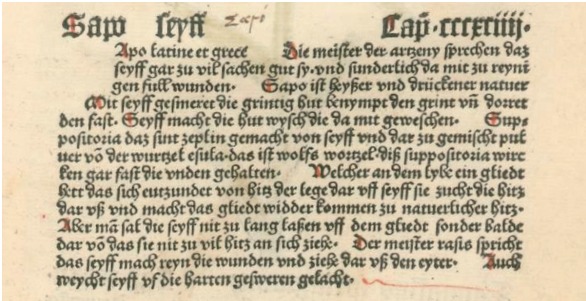 Sapo seyff Sapõ Cap̃·cccxciiij·
Apo latine et grece Die meister der artzeny sprechen daz
seyff gar zu vil sachen gut sy·vnd sunderlich da mit zu reyni
gen full wunden· Sapo ist heyßer vnd drückener natuer
Mit seyff gesmeret die grintig hut benympt den grint vñ dorret
den fast· Seyff macht die hut wysch die da mit geweschen· Sup-
positoria daz sint zeplin gemacht von seyff vnd dar zu gemischt pul
uer võ der wurtzel esula·das ist wolfs wortzel·diß suppositoria wirc
ken gar fast die vnden gehalten· Welcher an dem lybe ein gliedt
hett das sich entzundet von hitz der lege dar vff seyff sie zucht die hitz
dar vß vnd macht das gliedt widder kommen zu natuerlicher hitz·
Aber mã sal die seyff nit zu lang laßen vff dem gliedt sonder balde
dar võ das sie nit zu vil hitz an sich ziehe· Der meister rasis spricht
das seyff mach reyn die wunden vnd ziehe dar vß den eyter· Auch
weycht seyff vf die harten gesweren gelacht·